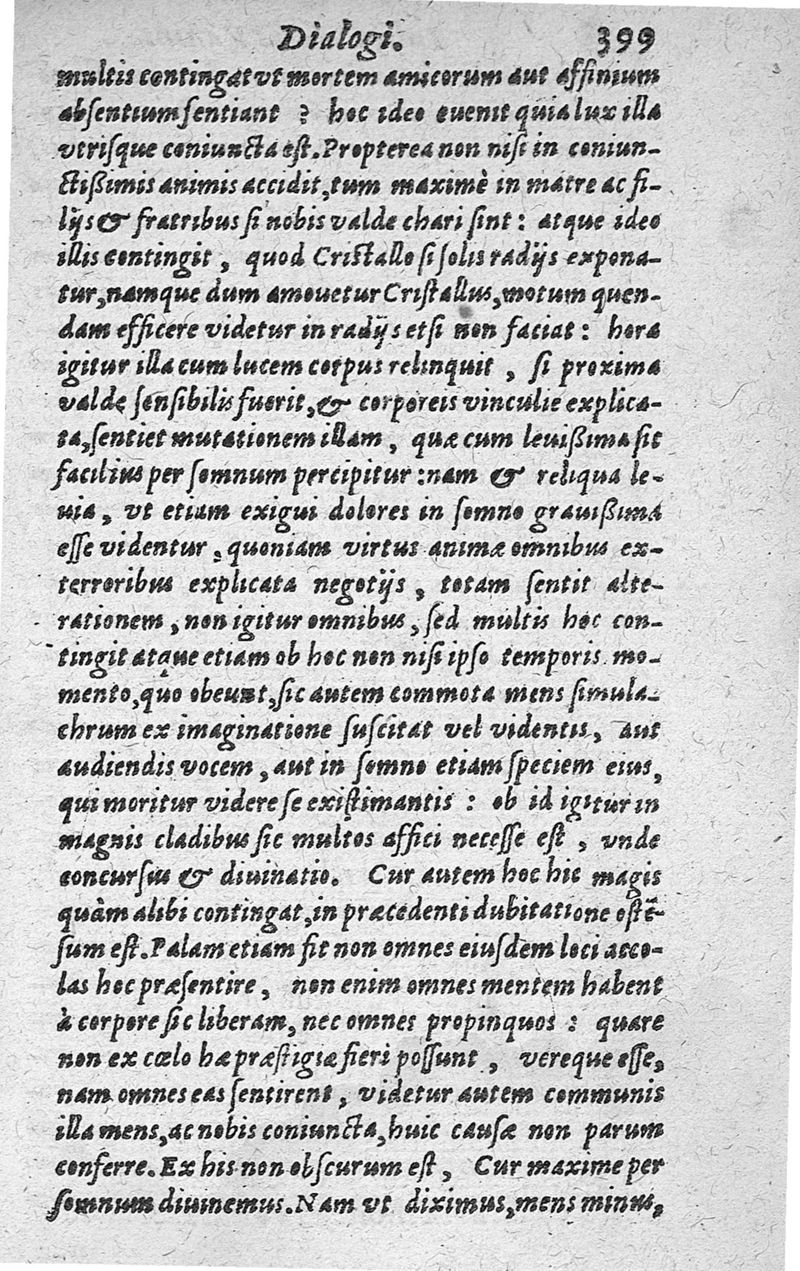 Dialogi. 399
multis contingat vt mortem amicorum aut affinium
absentium sentiant ? hoc ideo euenit quia lux illa
vtrisque coniuncta est. Propterea non nisi in coniun-
ctißimis animis accidit, tum maximè in matre ac fi-
lijs & fratribus si nobis valde chari sint : atque ideo
illis contingit , quod Cristallo si solis radijs expona-
tur, namque dum amouetur Cristallus, motum quen-
dam efficere videtur in radijs etsi non faciat : hora
igitur illa cum lucem corpus relinquit , si proxima
valde sensibilis fuerit, & corporeis vinculie explica-
ta, sentiet mutationem illam , quæ cum leuißima sit
facilius per somnum percipitur : nam & reliqua le-
uia , vt etiam exigui dolores in somno grauißima
esse videntur , quoniam virtus animæ omnibus ex-
terroribus explicata negotijs , totam sentit alte-
rationem , non igitur omnibus, sed multis hoc con-
tingit atque etiam ob hoc non nisi ipso temporis mo-
mento, quo obeunt, sic autem commota mens simula-
chrum ex imaginatione suscitat vel videntis, aut
audiendis vocem , aut in somno etiam speciem eius,
qui moritur videre se existimantis : ob id igitur in
magnis cladibus sic multos affici necesse est , vnde
concursus & diuinatio. Cur autem hoc hic magis
quàm alibi contingat, in præcedenti dubitatione ostẽ-
sum est. Palam etiam fit non omnes eiusdem loci acco-
las hoc præsentire , non enim omnes mentem habent
à corpore sic liberam, nec omnes propinquos : quare
non ex cœlo hæ præstigiæ fieri possunt , vereque esse,
nam omnes eas sentirent , videtur autem communis
illa mens, ac nobis coniuncta, huic causæ non parum
conferre. Ex his non obscurum est , Cur maxime per
somnum diuinemus. Nam vt diximus, mens minus,